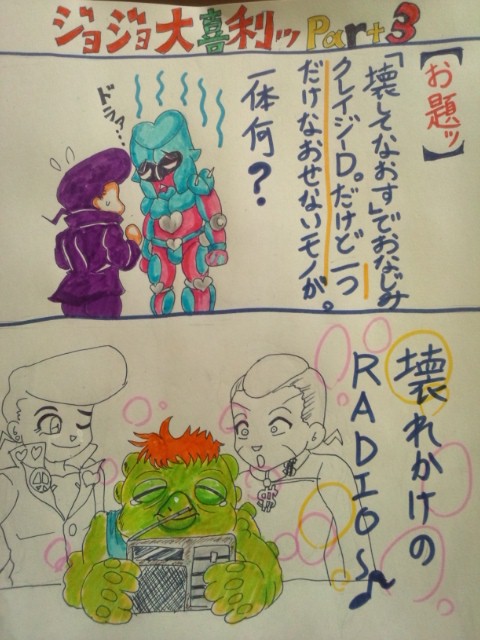 ジョジョ大喜利ッ Part3
【お題ッ】
「壊してなおす」でおなじみ
クレイジーD。だけど一つ
だけなおせないモノが。
一体何?
ドラァ…
壊れかけの
RADIO〜♪